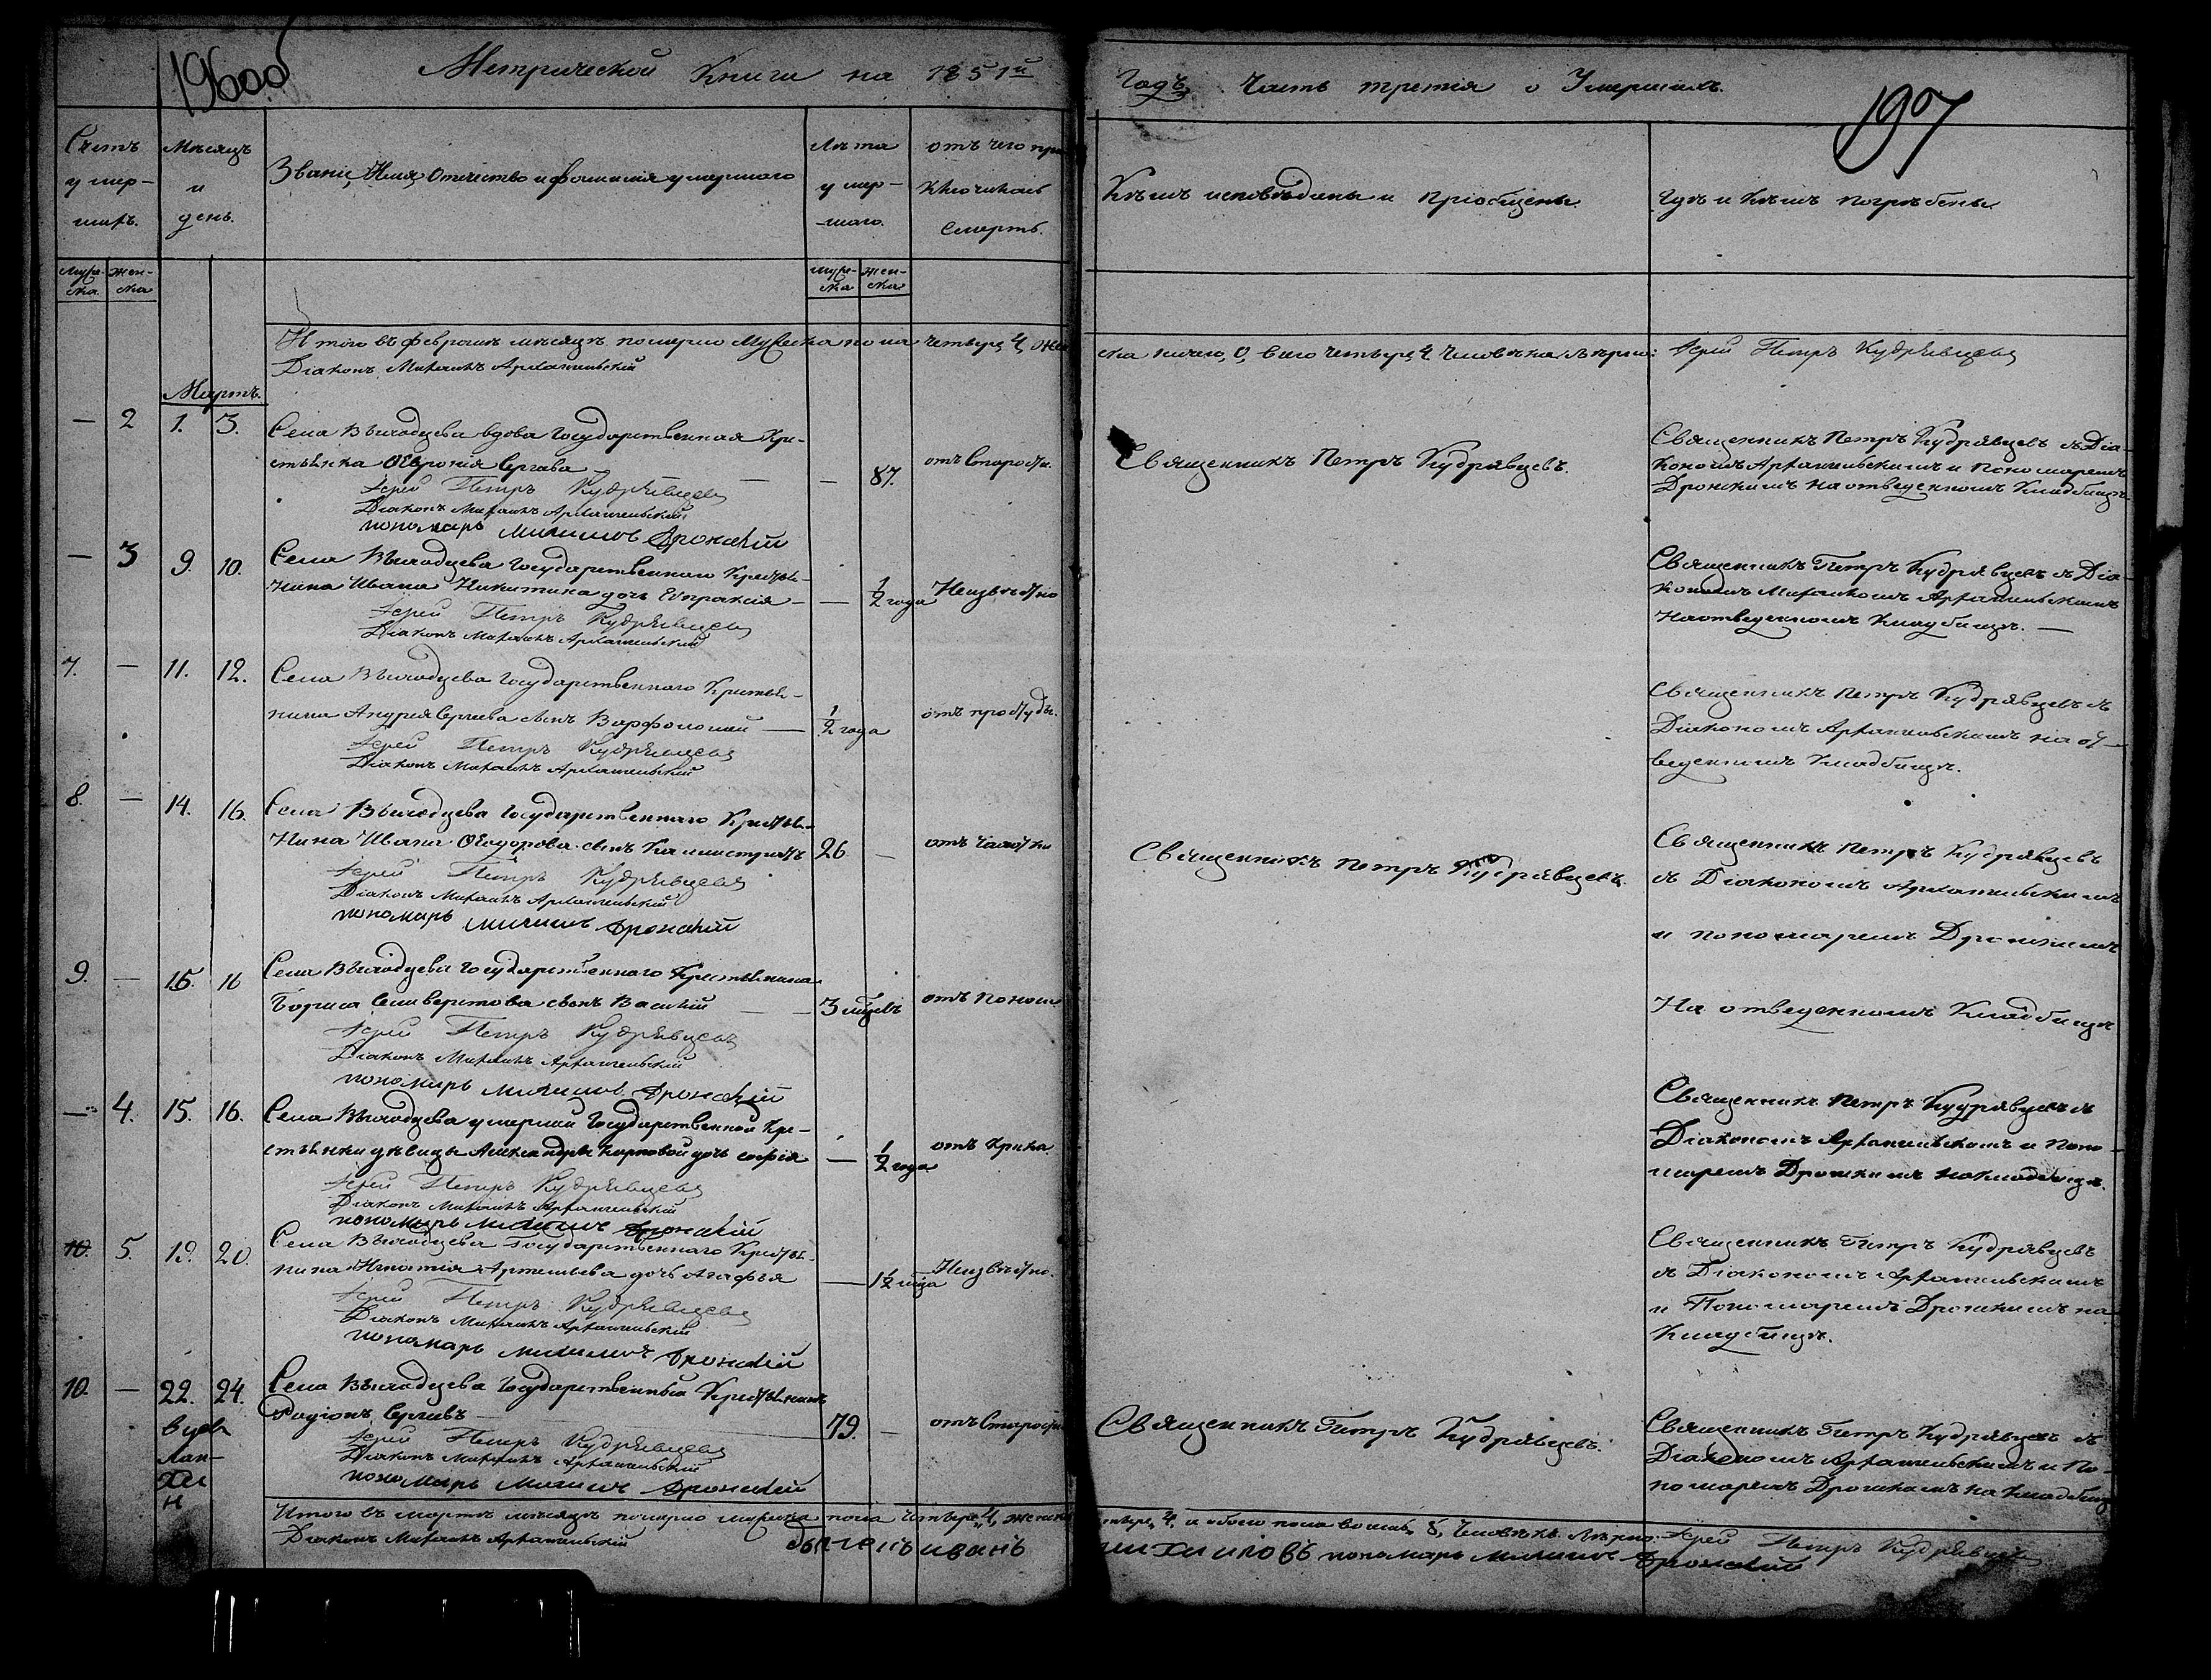 196об
Метрической Книги на 1851й
Годъ Часть третія о Умершихъ.
197
Счетъ умер-
шихъ.
Мѣсяцъ
и
день.
Званіе, Имя, Отчество и фамилія умершаго
Лѣта
умер-
шаго.
отъ чего при
ключилась
смерть.
Кѣмъ исповѣданы и пріобщены
Гдѣ и Кѣмъ погребены
муже-
ска.
жен-
ска
муже-
ска
жен-
ска
Итого въ февралѣ мѣсяцѣ померло Мужеска пола четыре, 4, жен
ска ничего, 0, всего четыре, 4 человѣка. Іерей Петръ Кудрявцевъ
Діаконъ Михаилъ Архангельскій
Мартъ.
— 2 1. 3. Села Выходцева вдова Государственная Кре-
стьянка Ѳевронія Сергѣева — — 87. отъ старости.
Священникъ Петръ Кудрявцевъ.
Священникъ Петръ Кудрявцевъ съ Діа-
кономъ Архангельскимъ и пономаремъ
Дронскимъ на отведенномъ Кладбищѣ
Іерей Петръ Кудрявцевъ
Діаконъ Михаилъ Архангельскій
пономарь Дронскій
— 3 9. 10. Села Выходцева Государственнаго Крестья-
нина Ивана Никитина дочь Евпраксія — — ½ года Неизвѣстно
Священникъ Петръ Кудрявцевъ съ Діа-
кономъ Михаиломъ Архангельскимъ
На отведенномъ Кладбищѣ. —
Іерей Петръ Кудрявцевъ
Діаконъ Михаилъ Архангельскій
7. — 11. 12. Села Выходцева Государственнаго Крестья-
нина Андрея Сергѣева сынъ Варфоломей — ½ года отъ простуды.
Священникъ Петръ Кудрявцевъ съ
Діакономъ Архангельскимъ на от-
веденномъ Кладбищѣ.
Іерей Петръ Кудрявцевъ
Діаконъ Михаилъ Архангельскій
8. — 14. 16. Села Выходцева Государственнаго Крестья-
нина Ивана Ѳеодорова сынъ Каллистратъ 26 — отъ чахотки
Священникъ Петръ Кудрявцевъ.
Священникъ Петръ Кудрявцевъ
съ Діакономъ Архангельскимъ
и пономаремъ Дронскимъ
Іерей Петръ Кудрявцевъ
Діаконъ Михаилъ Архангельскій
пономарь Дронскій
9. — 15. 16 Села Выходцева Государственнаго Крестьянина
Бориса Селиверстова сынъ Василій — — 3 мѣсяцъ отъ поноса
На отведенномъ Кладбищѣ
Іерей Петръ Кудрявцевъ
Діаконъ Михаилъ Архангельскій
пономарь Дронскій
— 4. 15. 16. Села Выходцева умершей Государственной Кре-
стьянки дѣвицы Александры Карповой дочь Софія — ½ года отъ крика
Священникъ Петръ Кудрявцевъ съ
Діакономъ Архангельскимъ и Поно-
маремъ Дронскимъ на кладбищѣ.
Іерей Петръ Кудрявцевъ
Діаконъ Михаилъ Архангельскій
пономарь Дронскій
10. 5. 19. 20. Села Выходцева Государственнаго Крестья-
нина Игнатія Артемьева дочь Агафья — 1½ года Неизвѣстно.
Священникъ Петръ Кудрявцевъ
съ Діакономъ Архангельскимъ
и Пономаремъ Дронскимъ на
Кладбищѣ.
Іерей Петръ Кудрявцевъ
Діаконъ Михаилъ Архангельскій
пономарь Дронскій
10. — 22. 24. Села Выходцева Государственный Крестьянинъ
Родіонъ Сергѣевъ — 79. — отъ старости
Священникъ Петръ Кудрявцевъ.
Священникъ Петръ Кудрявцевъ съ
Діакономъ Архангельскимъ и По-
номаремъ Дронскимъ на Кладбищѣ
Іерей Петръ Кудрявцевъ
Діаконъ Михаилъ Архангельскій
пономарь Дронскій
Итого въ мартѣ мѣсяцѣ померло мужеска пола четыре, 4, женска
четыре, 4, а обоего пола восемь, 8, человѣкъ. Іерей Петръ Кудрявцевъ
Діаконъ Михаилъ Архангельскій дьячекъ иванъ михаиловъ пономарь Дронскій